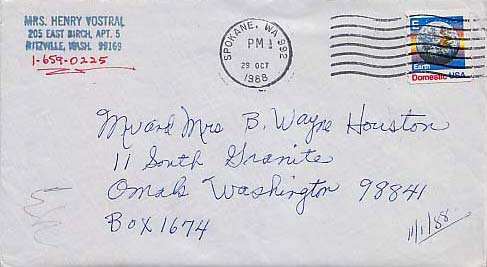 MRS. HENRY VOSTRAL
205 EAST BIRCH, APT. 5
RITZVILLE, WASH. 99169
1-659-0225
SPOKANE, WA 992
PM
29 OCT
1988
E
Earth
Domestic USA
Mr and Mrs B. Wayne Houston
11 South Granite
Omak Washington 98841
Box 1674
11/1/88